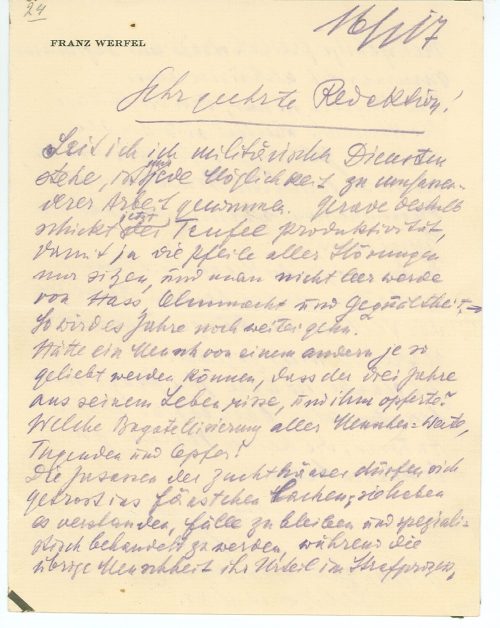 24
16/I 17
FRANZ WERFEL
Sehr geehrte Redaktion!
Seit ich in militärischen Diensten
stehe, ist mir jede Möglichkeit zu umfassen-
derer Arbeit genommen. Gerade deshalb
schickt jetzt der Teufel Produktivität,
damit ja die Pfeile aller Störungen
nur sitzen, und man nicht leer werde
von Hass, Ohnmacht und Gequältheit.
So wird es Jahre noch weitergehn.
Hätte ein Mensch von einem andern je so
geliebt werden können, dass der drei Jahre
aus seinem Leben risse, und ihm opferte?
Welche Bagatellisierung aller Menschen-Werte,
Tugenden und Opfer!
Die Insassen der Zuchthäuser dürfen sich
getrost ins Fäustchen lachen, sie haben
es verstanden, Fälle zu bleiben und speziali-
stisch behandelt zu werden, während die
übrige Menschheit ihr Urteil im Strafprozess,